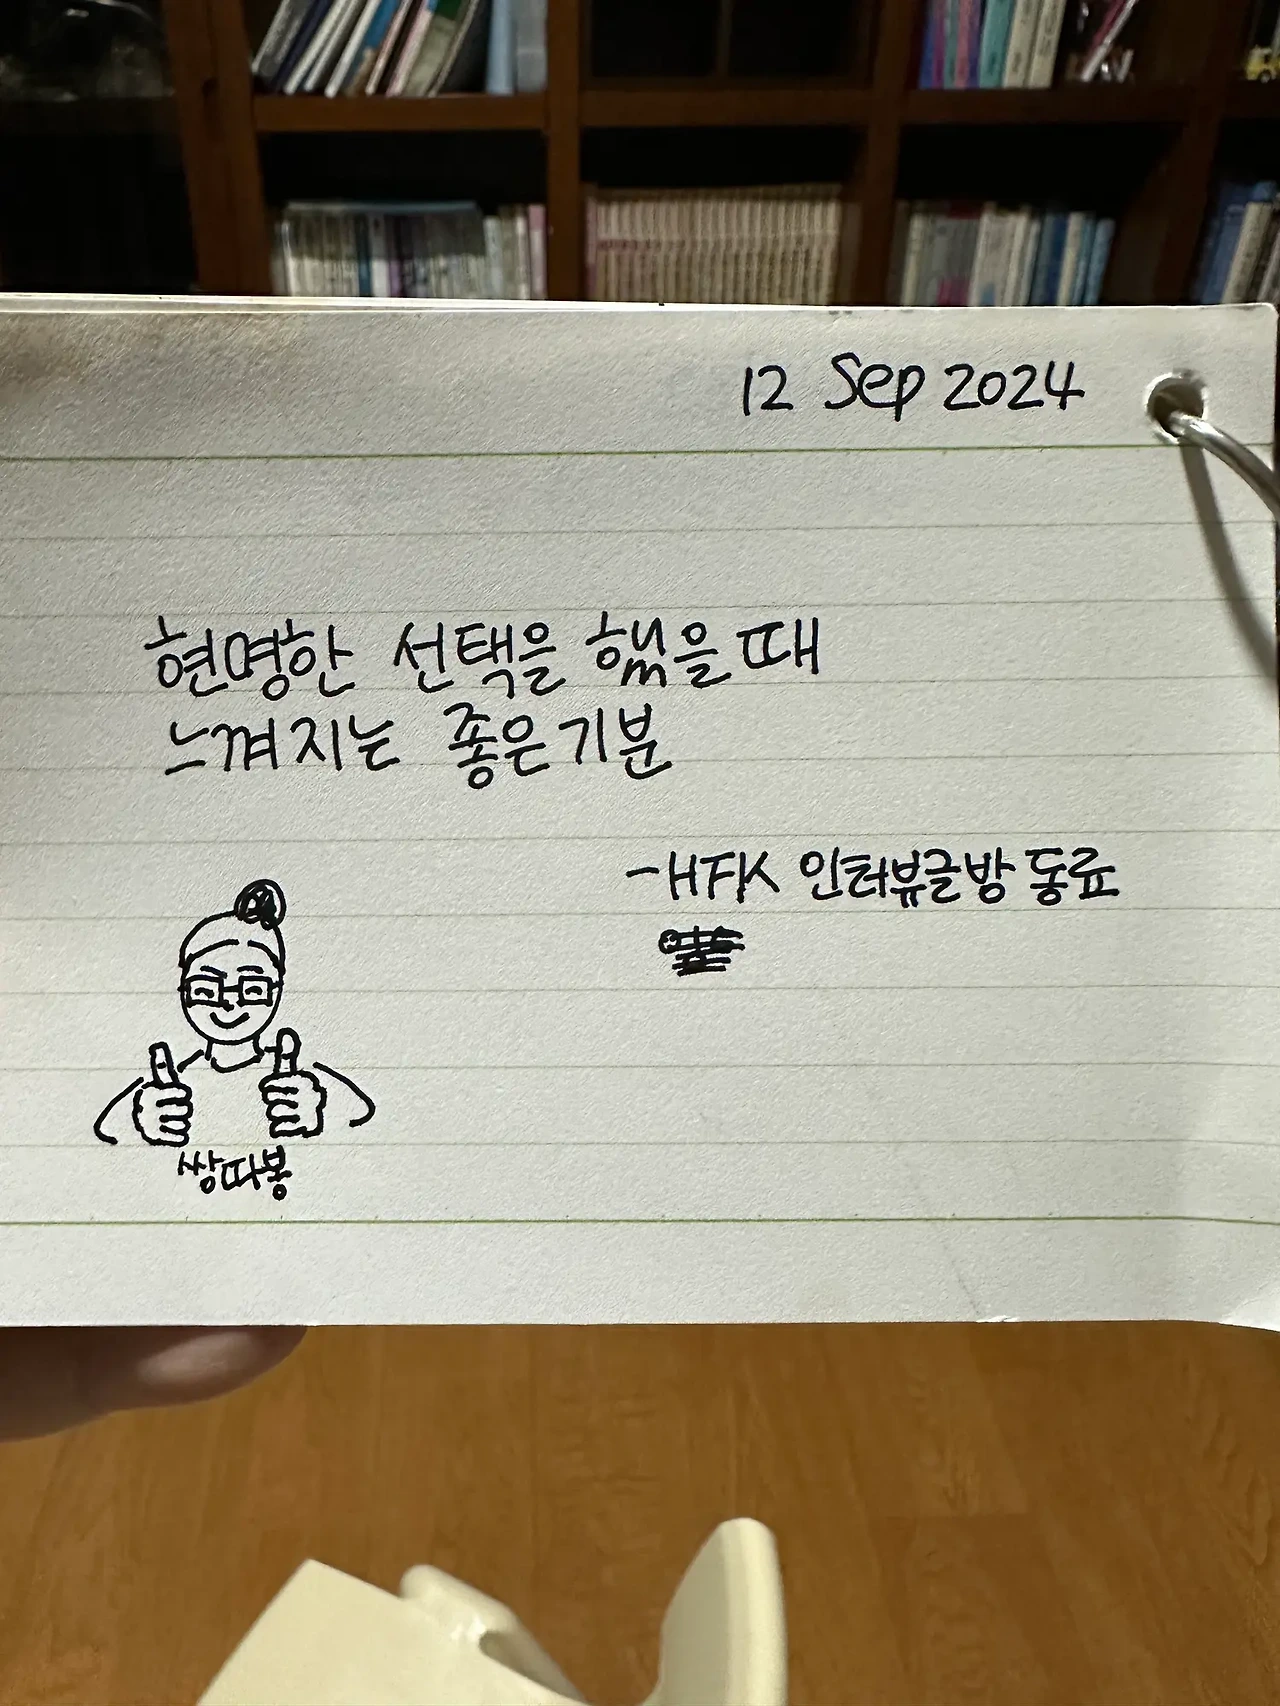 12 Sep 2024
현명한 선택을 했을 때
느껴지는 좋은 기분
-HFK 인터뷰글방 동료
쌍따봉